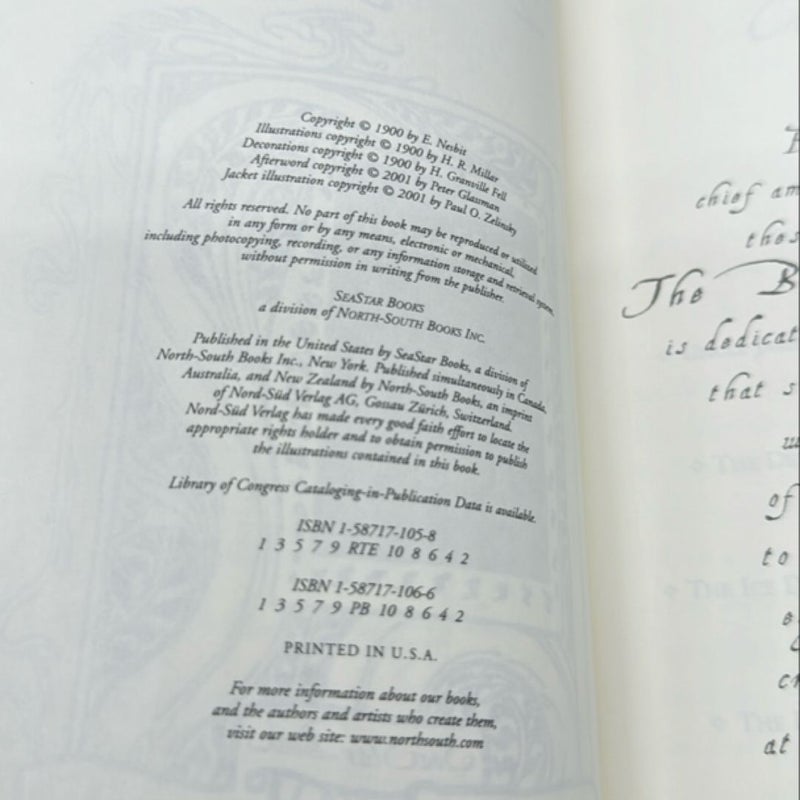 Copyright © 1900 by E. Nesbit
Illustrations copyright © 1900 by H. R. Millar
Decorations copyright © 1900 by H. Granville Fell
Afterword copyright © 2001 by Peter Glassman
Jacket illustration copyright © 2001 by Paul O. Zelinsky
All rights reserved. No part of this book may be reproduced or utilized
in any form or by any means, electronic or mechanical,
including photocopying, recording, or any information storage and retrieval system,
without permission in writing from the publisher.
SEASTAR BOOKS
a division of NORTH-SOUTH BOOKS INC.
Published in the United States by SeaStar Books, a division of
North-South Books Inc., New York. Published simultaneously in Canada,
Australia, and New Zealand by North-South Books, an imprint
of Nord-Süd Verlag AG, Gossau Zürich, Switzerland.
Nord-Süd Verlag has made every good faith effort to locate the
appropriate rights holder and to obtain permission to publish
the illustrations contained in this book.
Library of Congress Cataloging-in-Publication Data is available.
ISBN 1-58717-105-8
1 3 5 7 9 RTE 10 8 6 4 2
ISBN 1-58717-106-6
1 3 5 7 9 PB 10 8 6 4 2
PRINTED IN U.S.A.
For more information about our books,
and the authors and artists who create them,
visit our web site: www.northsouth.com
chief am
thes
The B
is dedicat
that s
of
to
at